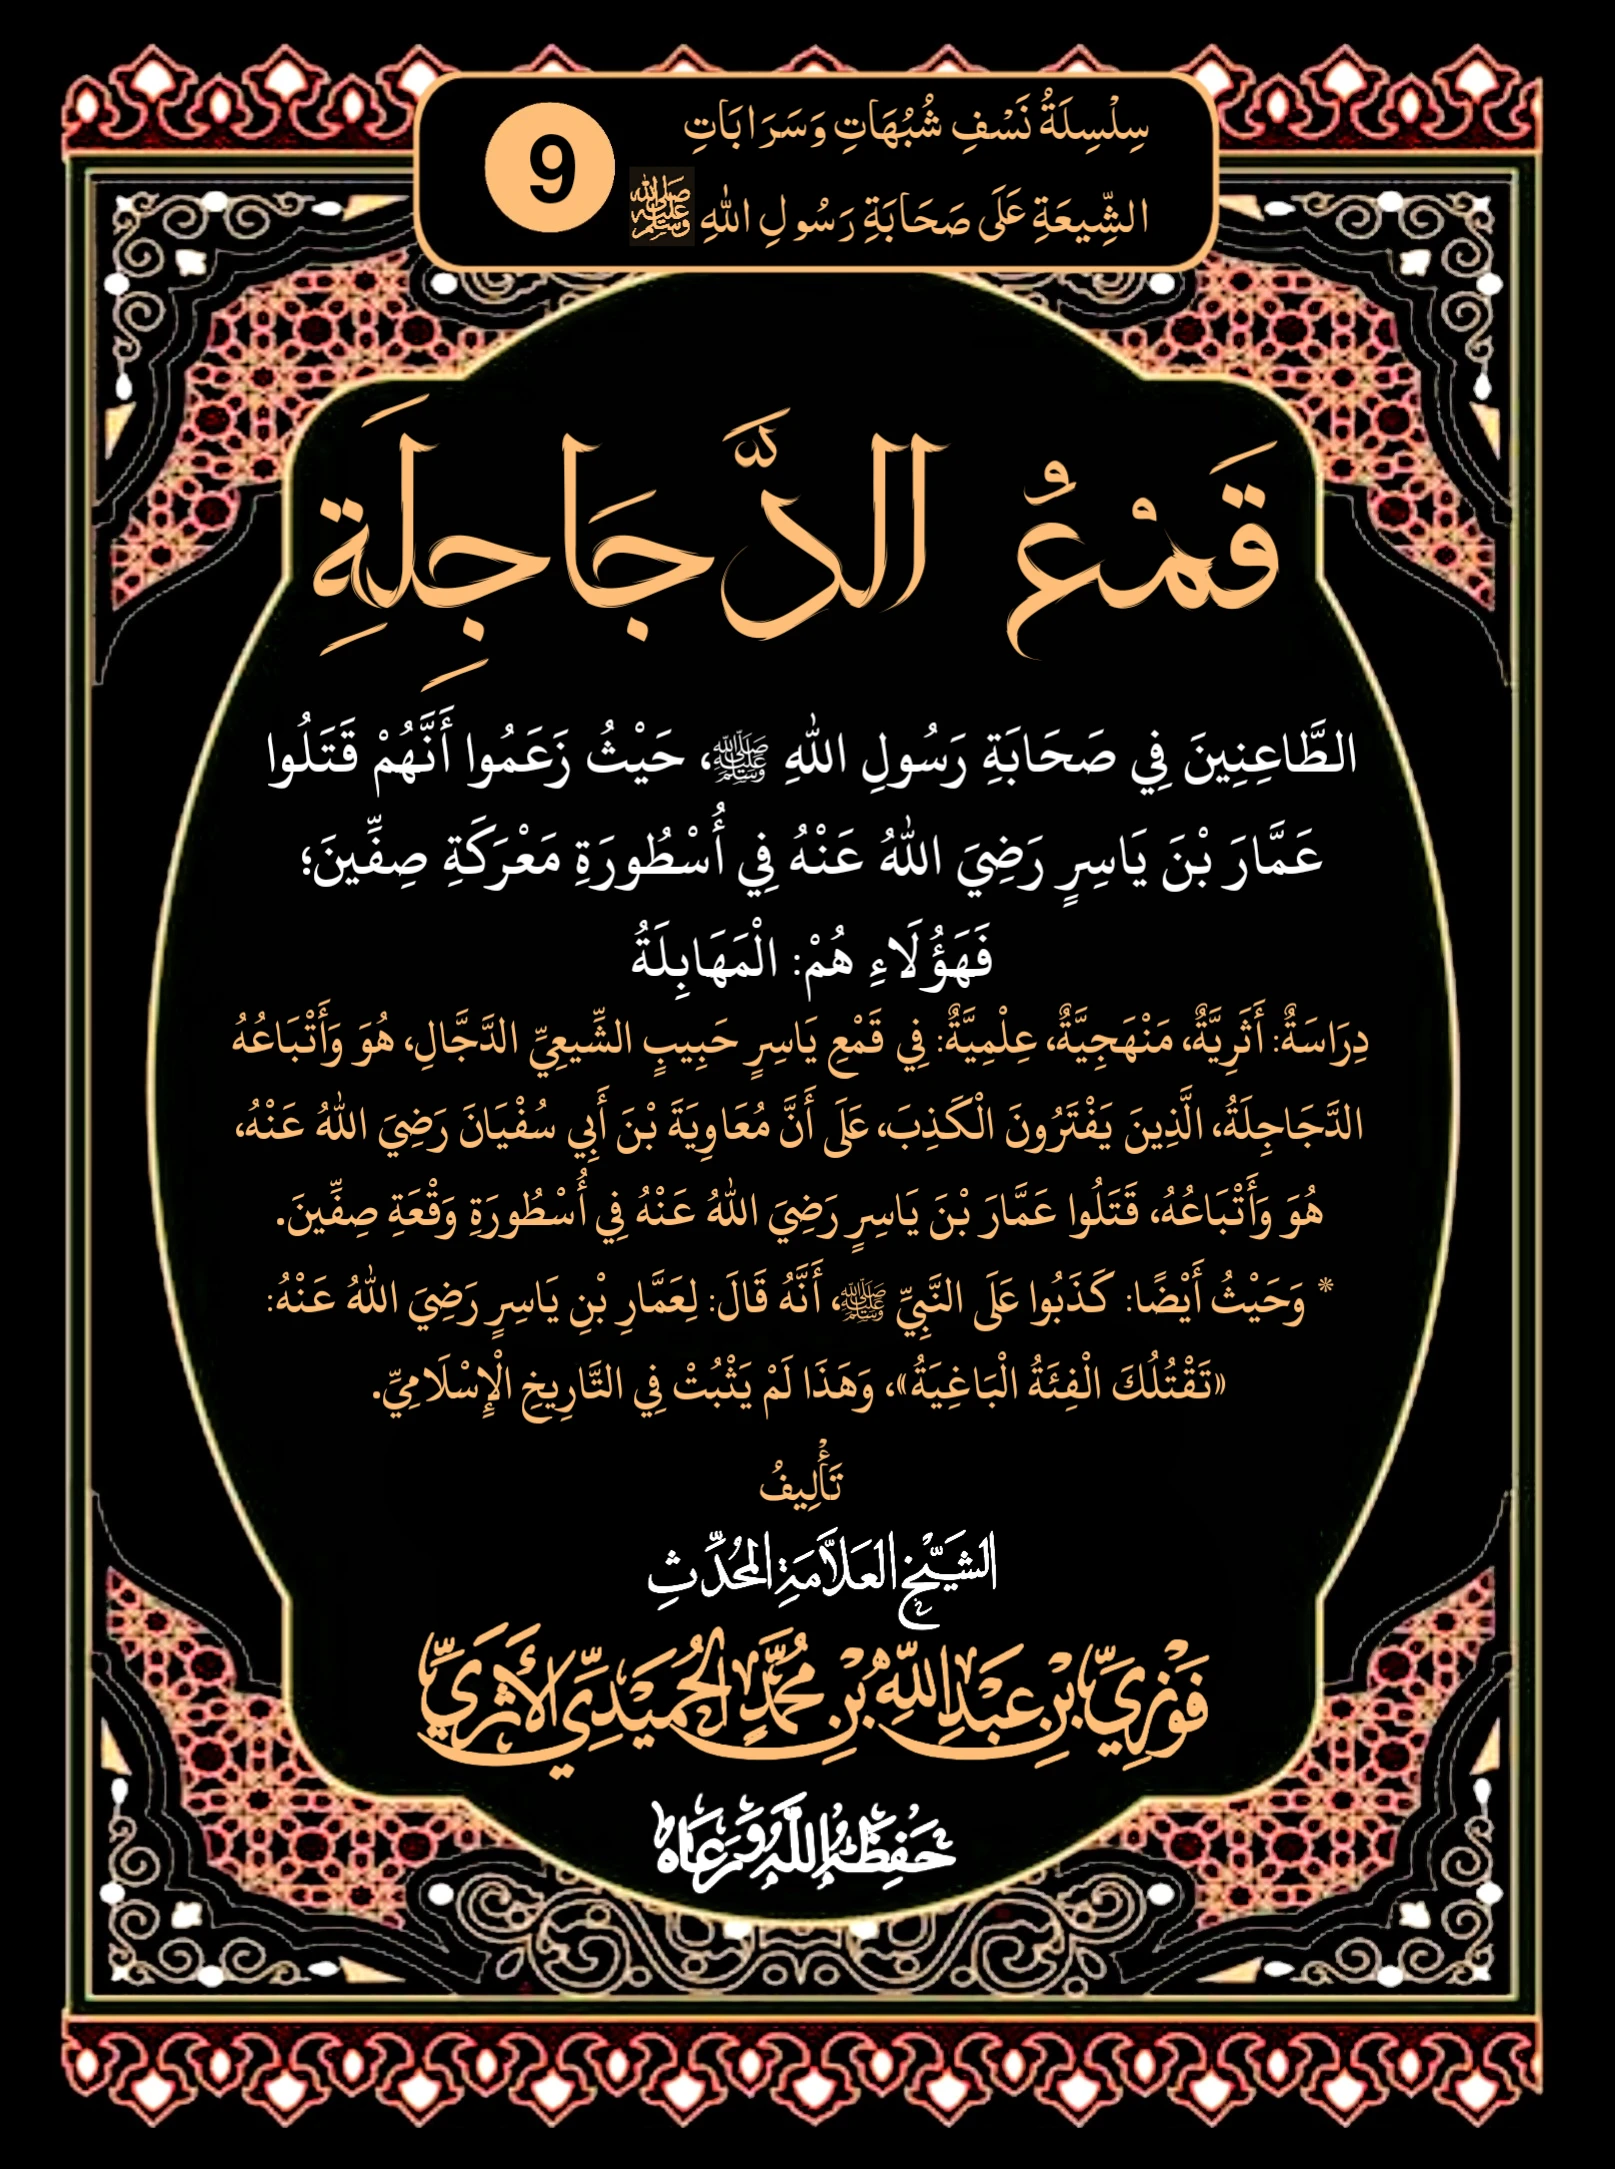 سِلْسِلَةُ نَسْفِ شُبُهَاتِ وَسَرَابَاتِ
الشِّيعَةِ عَلَى صَحَابَةِ رَسُولِ اللهِ ﷺ
9
قَمْعُ الدَّجَاجِلَةِ
الطَّاعِنِينَ فِي صَحَابَةِ رَسُولِ اللهِ ﷺ، حَيْثُ زَعَمُوا أَنَّهُمْ قَتَلُوا
عَمَّارَ بْنَ يَاسِرٍ رَضِيَ اللهُ عَنْهُ فِي أُسْطُورَةِ مَعْرَكَةِ صِفِّينَ؛
فَهَؤُلَاءِ هُمْ: الْمَهَابِلَةُ
دِرَاسَةٌ: أَثَرِيَّةٌ، مَنْهَجِيَّةٌ، عِلْمِيَّةٌ: فِي قَمْعِ يَاسِرٍ حَبِيبٍ الشِّيعِيِّ الدَّجَّالِ، هُوَ وَأَتْبَاعُهُ
الدَّجَاجِلَةُ، الَّذِينَ يَفْتَرُونَ الْكَذِبَ، عَلَى أَنَّ مُعَاوِيَةَ بْنَ أَبِي سُفْيَانَ رَضِيَ اللهُ عَنْهُ،
هُوَ وَأَتْبَاعُهُ، قَتَلُوا عَمَّارَ بْنَ يَاسِرٍ رَضِيَ اللهُ عَنْهُ فِي أُسْطُورَةِ وَقْعَةِ صِفِّينَ.
* وَحَيْثُ أَيْضًا: كَذَبُوا عَلَى النَّبِيِّ ﷺ، أَنَّهُ قَالَ: لِعَمَّارِ بْنِ يَاسِرٍ رَضِيَ اللهُ عَنْهُ:
«تَقْتُلُكَ الْفِئَةُ الْبَاغِيَةُ»، وَهَذَا لَمْ يَثْبُتْ فِي التَّارِيخِ الْإِسْلَامِيِّ.
تَأْلِيفُ
الشَّيْخِ العَلَّامَةِ المُحَدِّثِ
فَوْزِيِّ بْنِ عَبْدِ اللَّهِ بْنِ مُحَمَّدٍ الحُمَيْدِيِّ الأَثَرِيِّ
حَفِظَهُ اللَّهُ وَرَعَاهُ